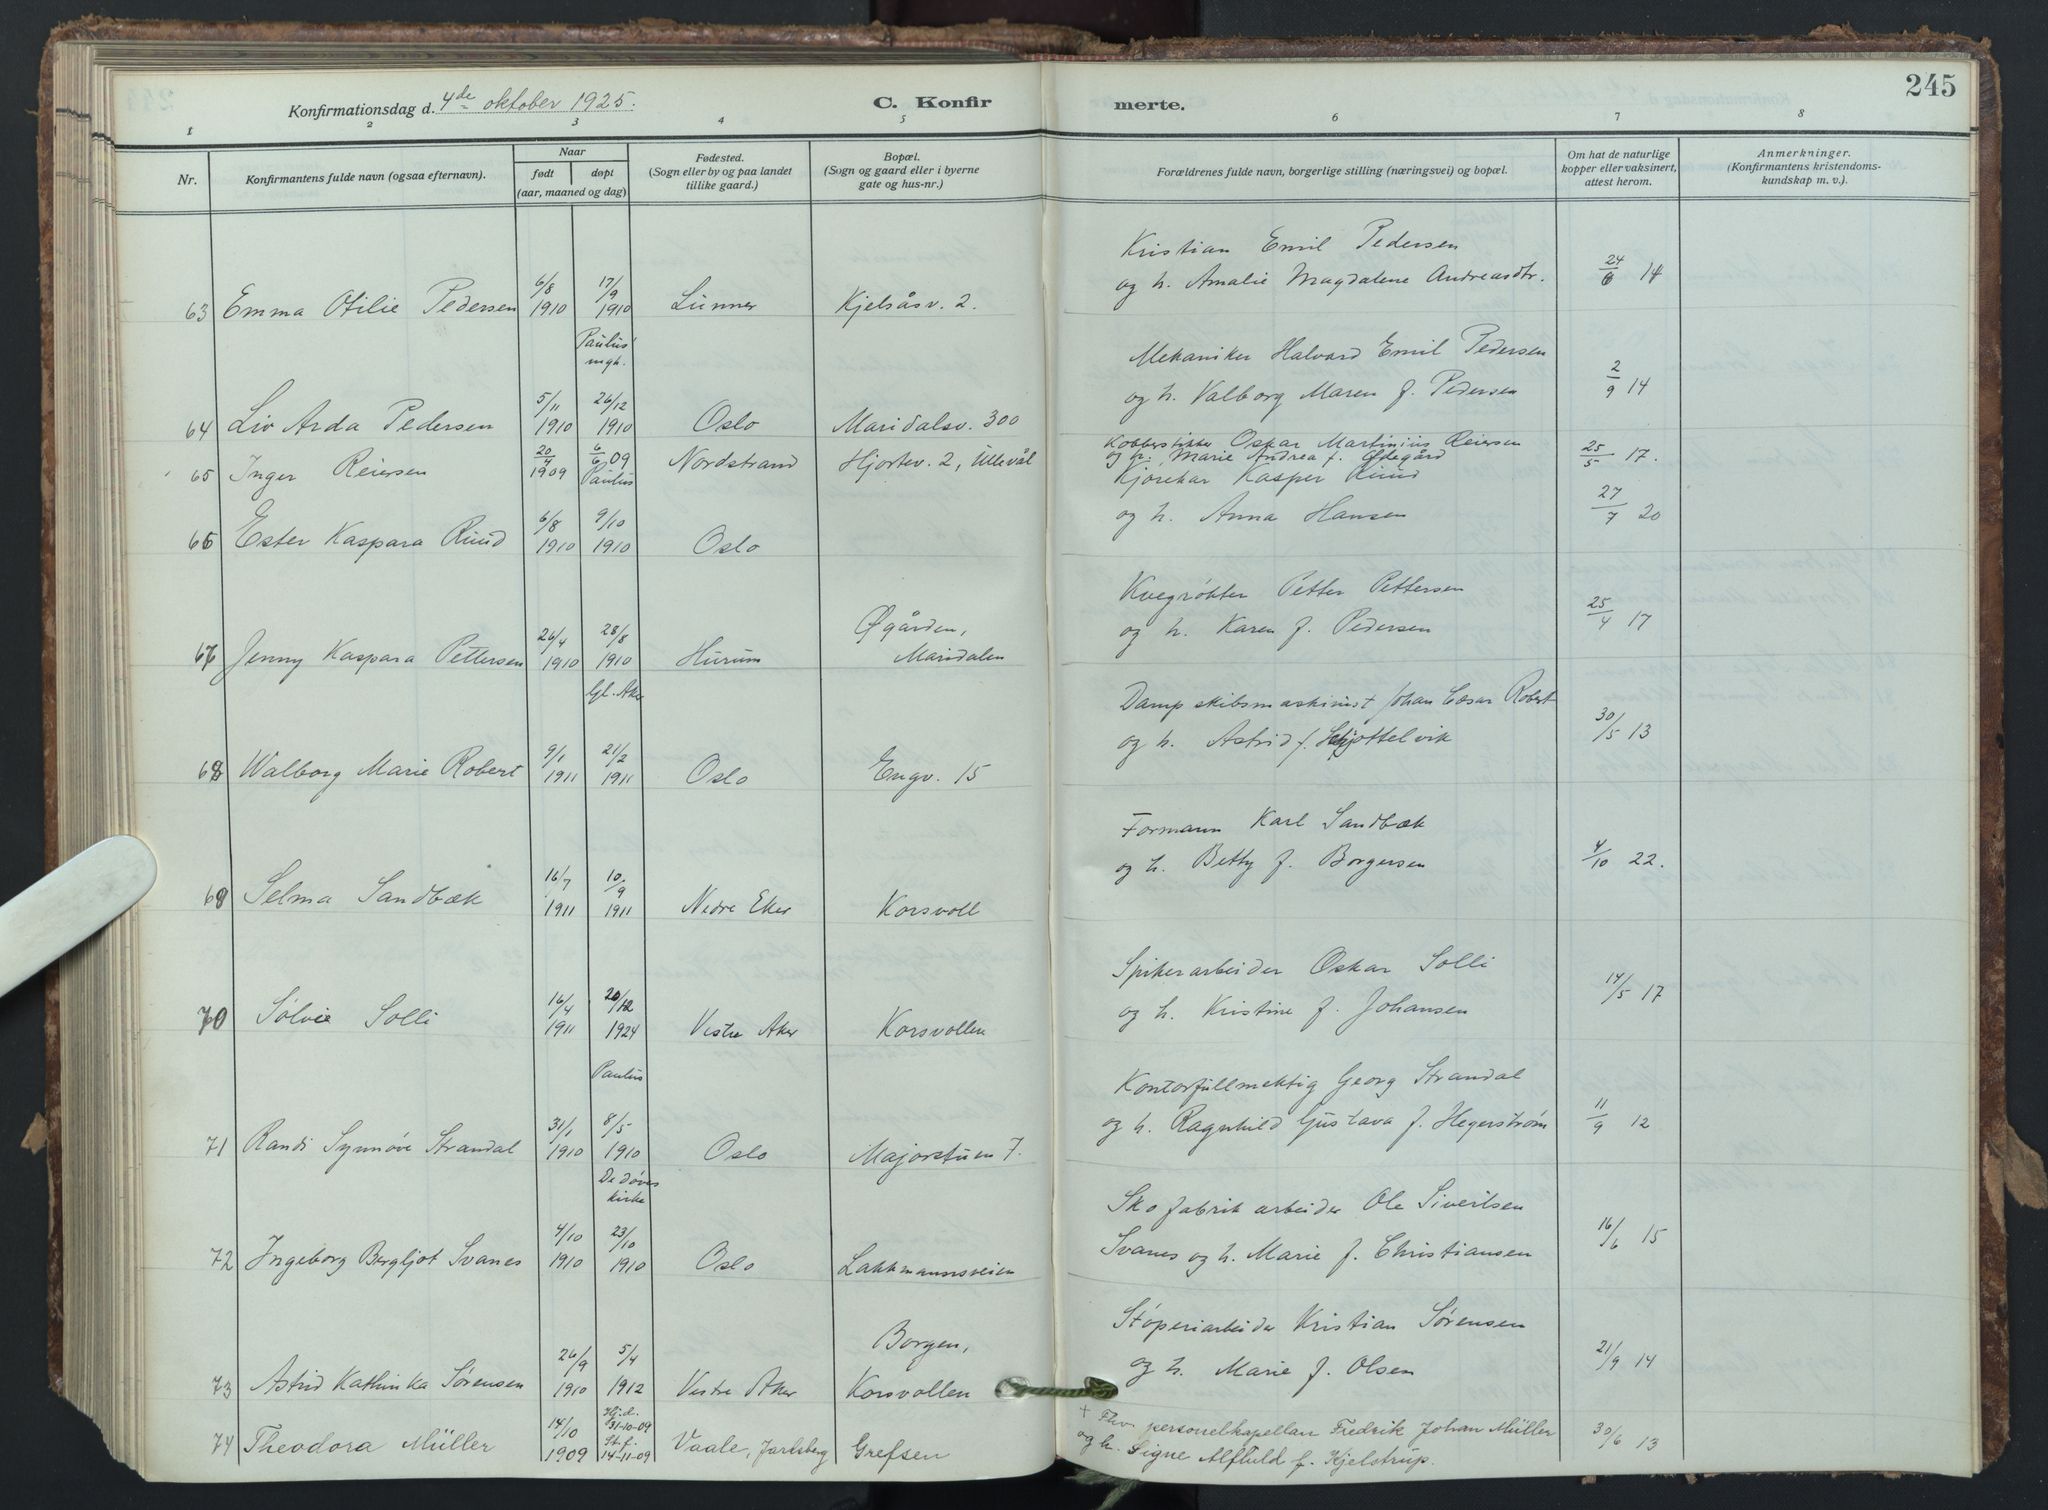 245
Konfirmationsdag d. 4de oktober 1925.
C. Konfirmerte.
1 2 3 4 5 6 7 8
Nr.
Konfirmantens fulde navn (ogsaa efternavn).
Naar
født døpt
(aar, maaned og dag)
Fødested.
(Sogn eller by og paa landet
tillike gaard.)
Bopæl.
(Sogn og gaard eller i byerne
gate og hus-nr.)
Forældrenes fulde navn, borgerlige stilling (næringsvei) og bopæl.
Om hat de naturlige
kopper eller vaksinert,
attest herom.
Anmerkninger.
(Konfirmantens kristendoms-
kundskap m. v.).
Kristian Emil Pedersen
6/8 17/9 og h. Amalie Magdalene Andreasdtr. 24/6 14
63 Emma Otilie Pedersen 1910 1910 Lunner Kjelsåsv. 2.
Paulus'
mgh.
Mekaniker Halvard Emil Pedersen
og h. Valborg Maren f. Pedersen 2/9 14
5/11 26/12
64 Liv Arda Pedersen 1910 1910 Oslo Maridalsv. 300
Kobberstikker Oskar Martinius Reiersen
20/4 6/6 09 og h. Marie Andrea f. Ødegård 25/5 17.
65 Inger Reiersen 1909 Paulus Nordstrand Hjortev. 2, Ullevål
Kjørekar Kasper Ruud
6/8 9/10 og h. Anna Hansen 27/7 20
66 Ester Kaspara Ruud 1910 1910 Oslo
Kvegrøkter Petter Pettersen
26/4 28/8 Øgården, og h. Karen f. Pedersen 25/4 17
67 Jenny Kaspara Pettersen 1910 1910 Hurum Maridalen
Gl. Aker
Dampskibsmaskinist Johan Cæsar Robert
og h. Astrid f. Hjøttelvik 30/5 13
9/1 21/2
68 Walborg Marie Robert 1911 1911 Oslo Engv. 15
Formann Karl Sandbæk
og h. Betty f. Borgersen 4/10 22.
16/7 10/9
69 Selma Sandbæk 1911 1911 Nedre Eker Korsvoll
Spikerarbeider Oskar Solli
16/4 20/12 og h. Kristine f. Johansen 14/5 17
70 Sølvie Solli 1911 1924 Vestre Aker Korsvollen
Paulus
Kontorfullmektig Georg Strandal
31/1 8/5 og h. Ragnhild Gustava f. Hegerstrøm 11/9 12
71 Randi Synnøve Strandal 1910 1910 Oslo Majorstuen 7.
De døves
kirke
Skofabrikarbeider Ole Sivertsen
4/10 23/10 Svanes og h. Marie f. Christiansen 16/6 15
72 Ingeborg Bergljot Svanes 1910 1910 Oslo Lakkmannsveien
Støperiarbeider Kristian Sørensen
26/9 5/4 Borgen, og h. Marie f. Olsen 21/9 14
73 Astrid Kathinka Sørensen 1910 1912 Vestre Aker Korsvollen
14/10 Hj.d. 31-10-09 + Fhv. personelkapellan Fredrik Johan Müller 30/6 13
74 Theodora Müller 1909 St.f. 14-11-09 Vaale, Jarlsberg Grefsen og h. Signe Alfhild f. Kjelstrup.